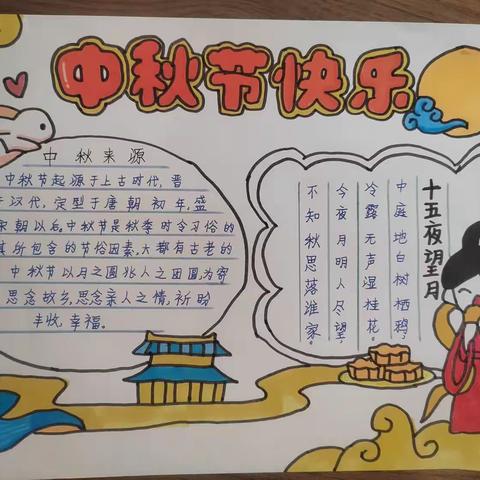 中秋节快乐
中秋来源
中秋节起源于上古时代,普
于汉代,定型于唐朝初年,盛
宋朝以后。中秋节是秋季时令习俗的
其所包含的节俗因素,大都有古老的
中秋节以月之圆兆人之团圆,为寄
思念故乡,思念亲人之情,祈盼
丰收,幸福。
十五夜望月
中庭地白树栖鸦,
冷露无声湿桂花。
今夜月明人尽望,
不知秋思落谁家。